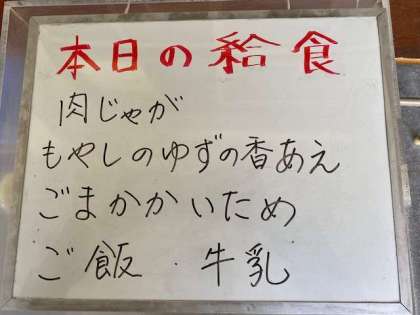 本日の給食
肉じゃが
もやしのゆずの香あえ
ごまかかいため
ご飯・牛乳